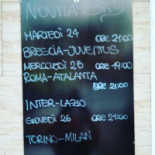 NOVITÀ
MARTEDÌ 24 ORE 21:00
BRESCIA-JUVENTUS
MERCOLEDÌ 25 ORE 19:00
ROMA-ATALANTA
ORE 21:00
INTER-LAZIO
GIOVEDÌ 26 ORE 21:00
TORINO-MILAN